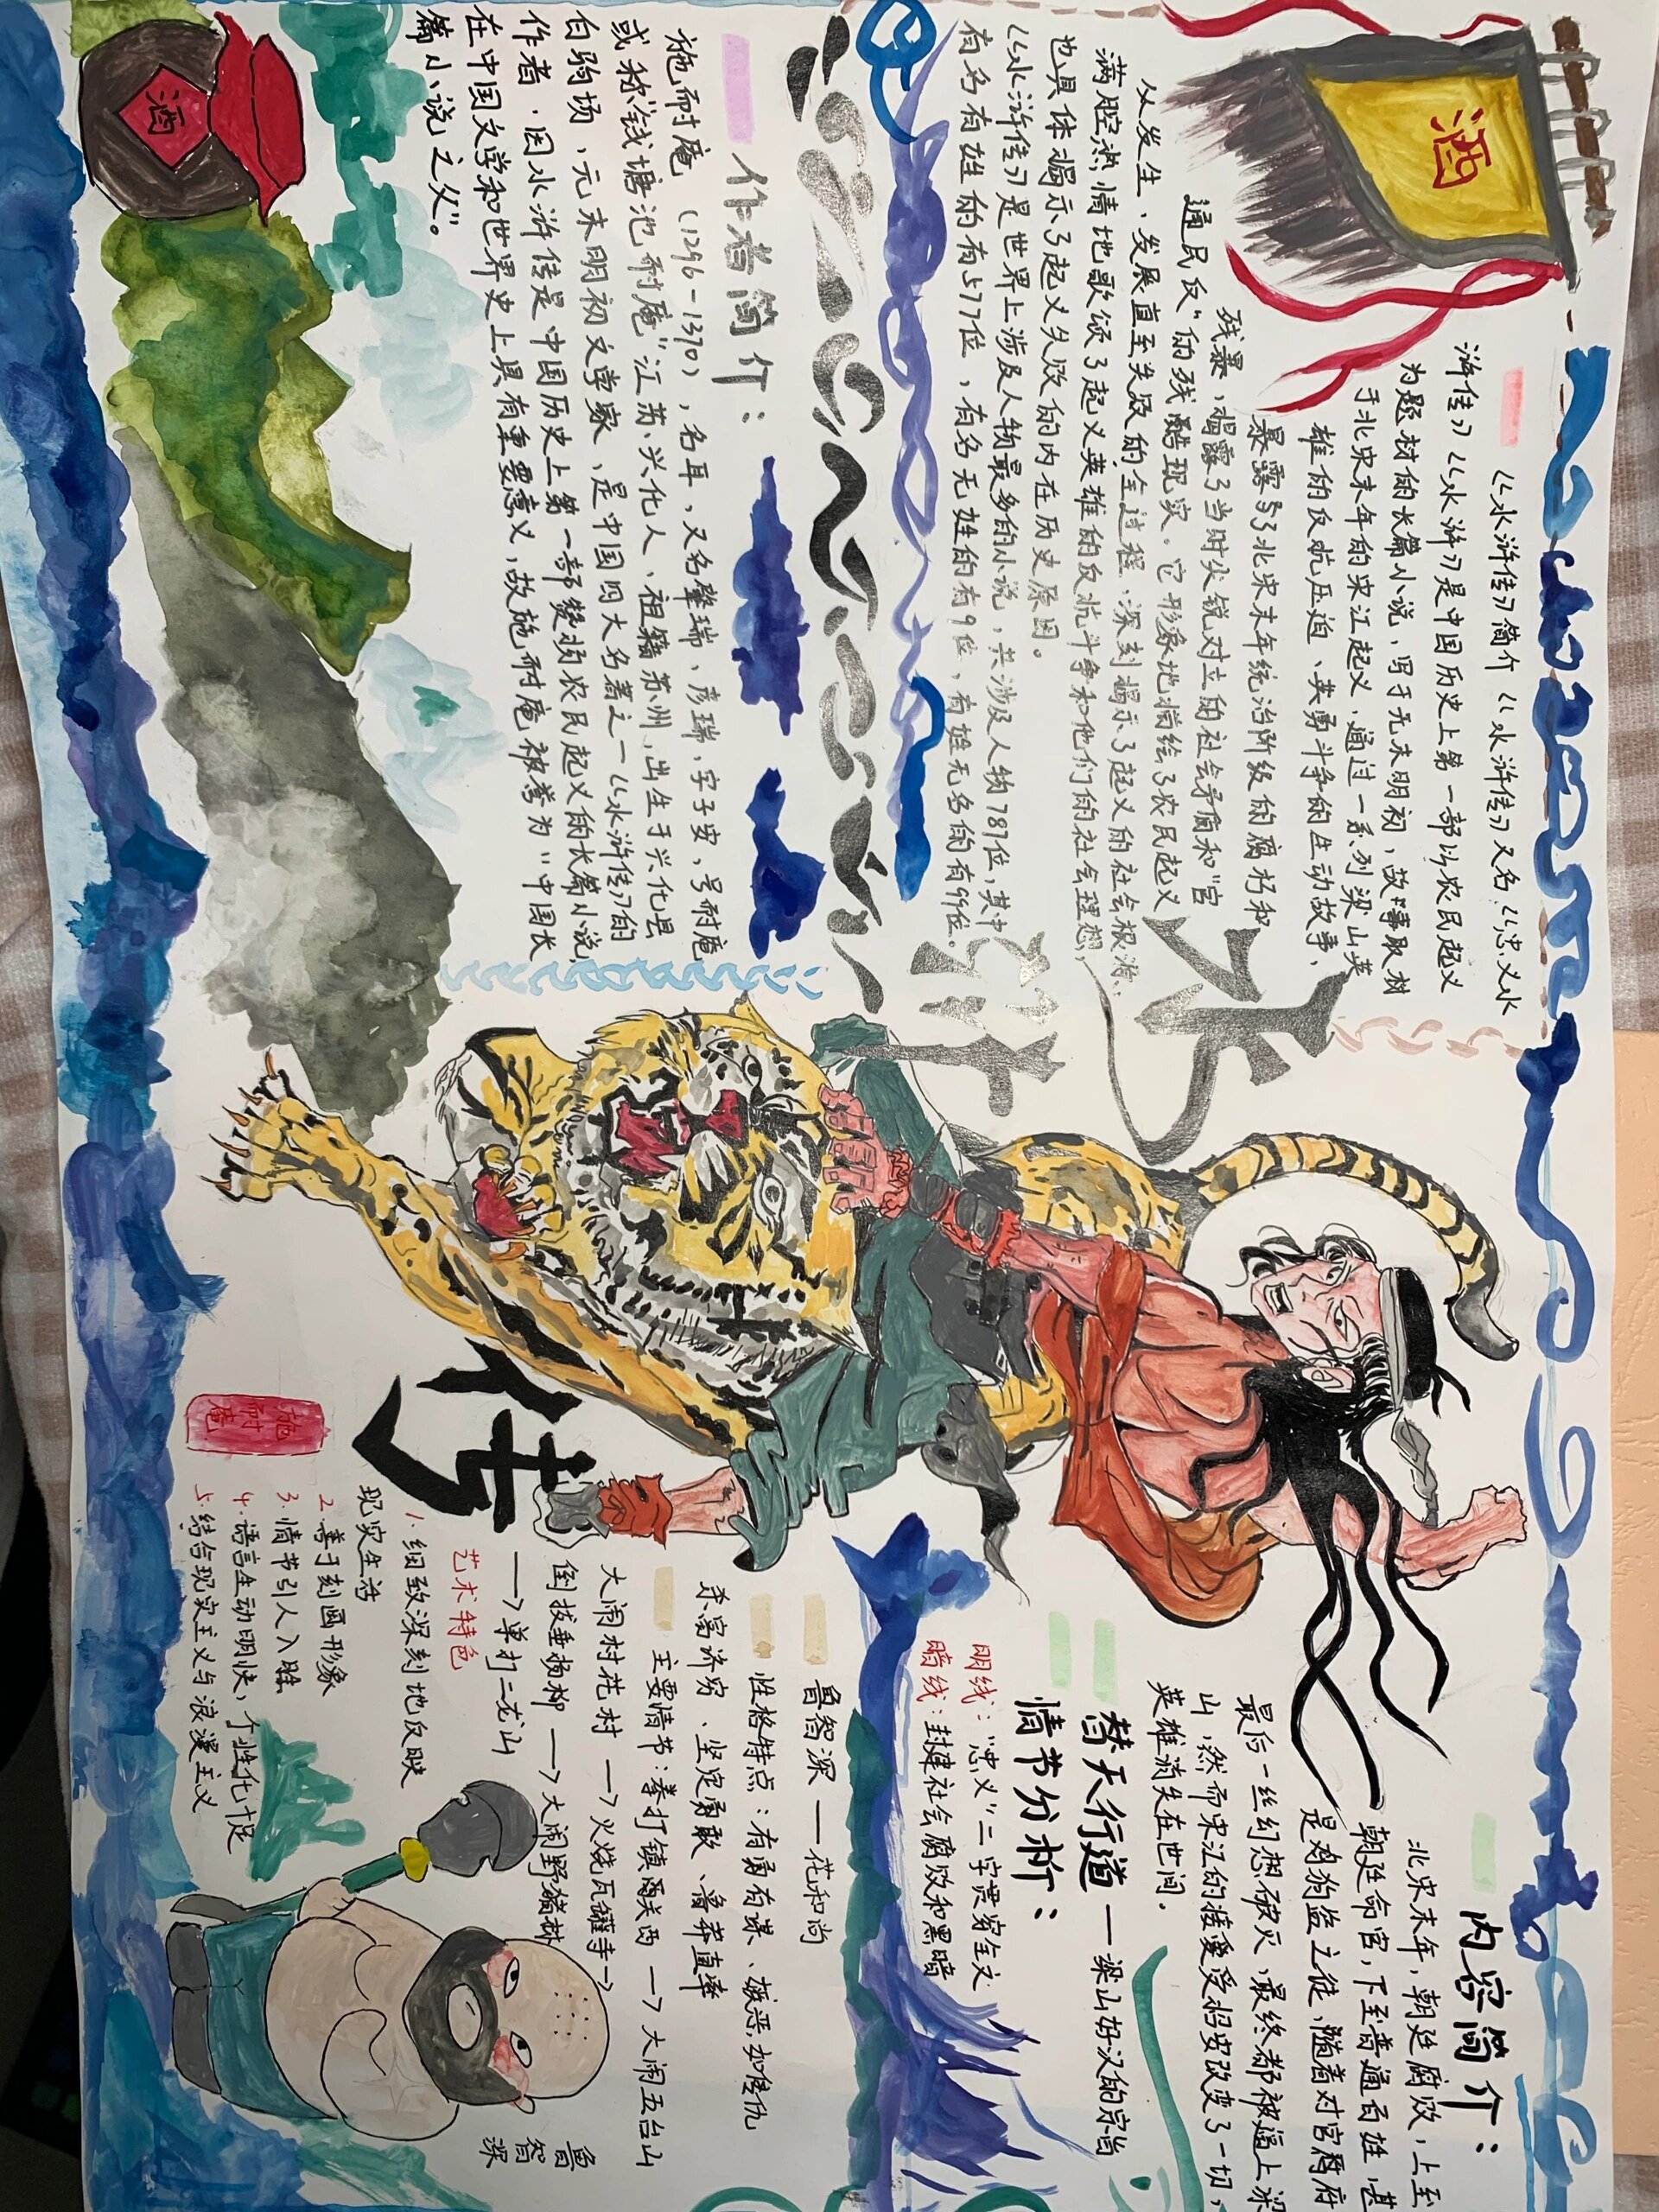 酒
《水浒传》简介 《水浒传》又名《忠义水
浒传》《水浒》是中国历史上第一部以农民起义
为题材的长篇小说,写于元末明初,故事取材
于北宋末年的宋江起义,通过一系列梁山英
雄的反抗压迫、英勇斗争的生动故事,
暴露了北宋末年统治阶级的腐朽和
残暴,揭露了当时尖锐对立的社会矛盾和“官
逼民反”的残酷现实。它形象地描绘了农民起义
从发生、发展直至失败的全过程,深刻揭示了起义的社会根源,
满腔热情地歌颂了起义英雄的反抗斗争和他们的社会理想,
也具体揭示了起义失败的内在历史原因。
《水浒传》是世界上涉及人物最多的小说,共涉及人物787位,其中
有名有姓的有577位,有名无姓的有9位,有姓无名的有99位。
作者简介:
施耐庵 (1296-1370),名耳,又名肇瑞、彦瑞,字子安,号耐庵
或称“钱塘施耐庵”江苏兴化人、祖籍苏州,出生于兴化县
白驹场,元末明初文学家,是中国四大名著之一《水浒传》的
作者,因水浒传是中国历史上第一部赞扬农民起义的长篇小说,
在中国文学和世界史上具有重要意义,故施耐庵被誉为“中国长
篇小说之父”。
酒
水
浒
传
施
耐
庵
内容简介:
北宋末年,朝廷腐败,上至
朝廷命官,下至普通百姓,甚
是鸡狗盗之徒,随着对官府
最后一丝幻想破灭,最终都被逼上梁
山,然而宋江的接受受招安改变了一切,
英雄消失在世间。
替天行道——梁山好汉的宗旨
情节分析:
明线:“忠义”二字贯穿全文
暗线:封建社会腐败和黑暗
鲁智深——花和尚
性格特点:有勇有谋、嫉恶如仇
杀富济穷、坚定勇敢、鲁莽直率
主要情节:拳打镇关西→大闹五台山
大闹桃花村→火烧瓦罐寺→
倒拔垂杨柳→大闹野猪林
→单打二龙山
艺术特色
1.细致深刻地反映
现实生活
2.善于刻画形象
3.情节引人入胜
4.语言生动明快,个性化十足
5.结合现实主义与浪漫主义
鲁
智
深